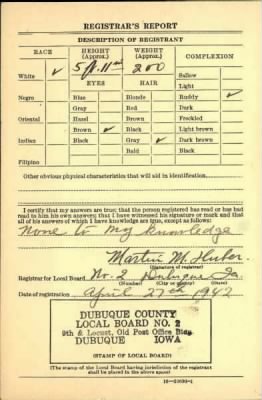 REGISTRAR'S REPORT
DESCRIPTION OF REGISTRANT
RACE HEIGHT (Approx.) WEIGHT (Approx.) COMPLEXION
White ✓ 5 ft. 11 in 200 Sallow
EYES HAIR Light
Negro Blue Blonde Ruddy ✓
Gray Red Dark
Oriental Hazel Brown Freckled
Brown ✓ Black Light brown
Indian Black Gray ✓ Dark brown
Bald Black
Filipino
Other obvious physical characteristics that will aid in identification
I certify that my answers are true; that the person registered has read or has had
read to him his own answers; that I have witnessed his signature or mark and that
all of his answers of which I have knowledge are true, except as follows:
None to my knowledge
Martin M. Huber
(Signature of registrar)
Registrar for Local Board No. 2 Dubuque Ia.
(Number) (City or county) (State)
Date of registration April 27th 1942
DUBUQUE COUNTY
LOCAL BOARD NO. 2
9th & Locust, Old Post Office Bldg.
DUBUQUE IOWA
(STAMP OF LOCAL BOARD)
(The stamp of the Local Board having jurisdiction of the registrant
shall be placed in the above space)